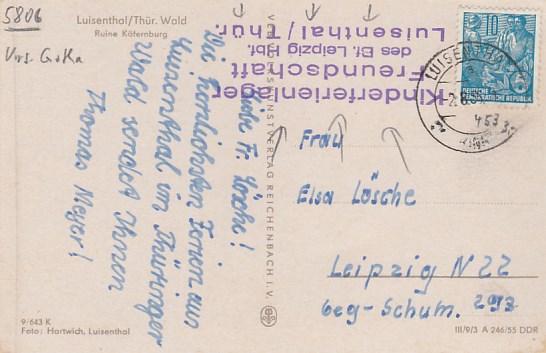 5806
Vrs. G+Ka
Luisenthal/Thür. Wald
Ruine Käfernburg
Liebe Fr. Lösche!
Die herzlichsten Feriengrüße aus
Luisenthal im Thüringer
Wald sendet Ihnen
Thomas Meyer!
9/643 K
Foto: Hartwich, Luisenthal
REICHENBACH I. V.
Kinderferienlager
Freundschaft
des Bf. Leipzig Hbf.
Luisenthal/Thür.
10
DEUTSCHE
DEMOKRATISCHE REPUBLIK
LUISENTHA
45332
Frau
Elsa Lösche
Leipzig N 22
Geg-Schum. 293
III/9/3 A 246/55 DDR